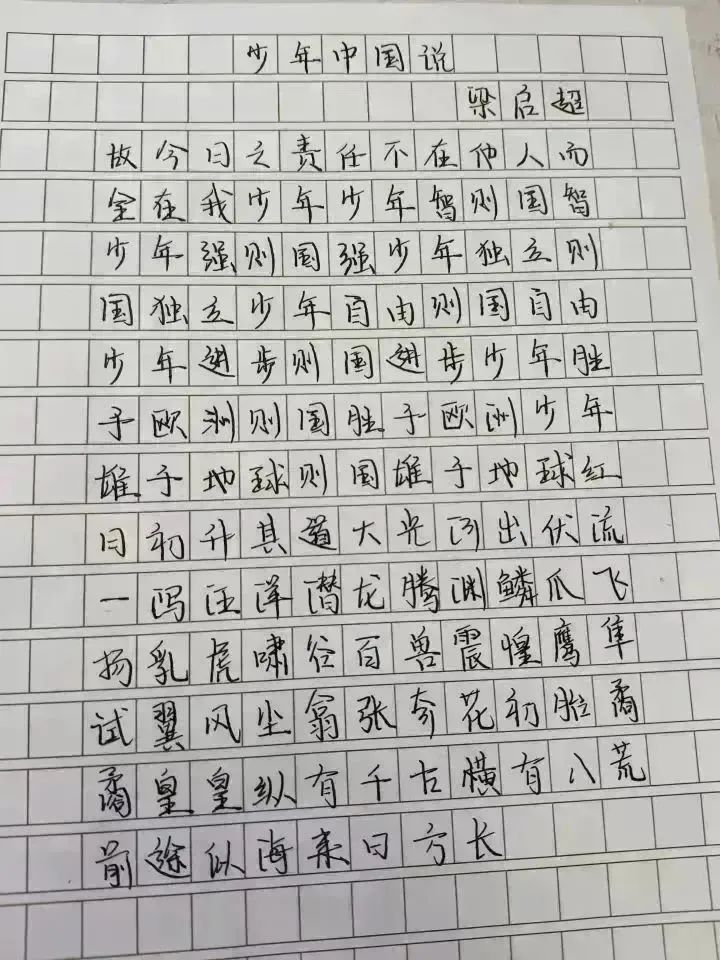 少年中国说
梁启超
故今日之责任不在他人而
全在我少年少年智则国智
少年强则国强少年独立则
国独立少年自由则国自由
少年进步则国进步少年胜
于欧洲则国胜于欧洲少年
雄于地球则国雄于地球红
日初升其道大光河出伏流
一泻汪洋潜龙腾渊鳞爪飞
扬乳虎啸谷百兽震惶鹰隼
试翼风尘翕张奇花初胎矞
矞皇皇纵有千古横有八荒
前途似海来日方长